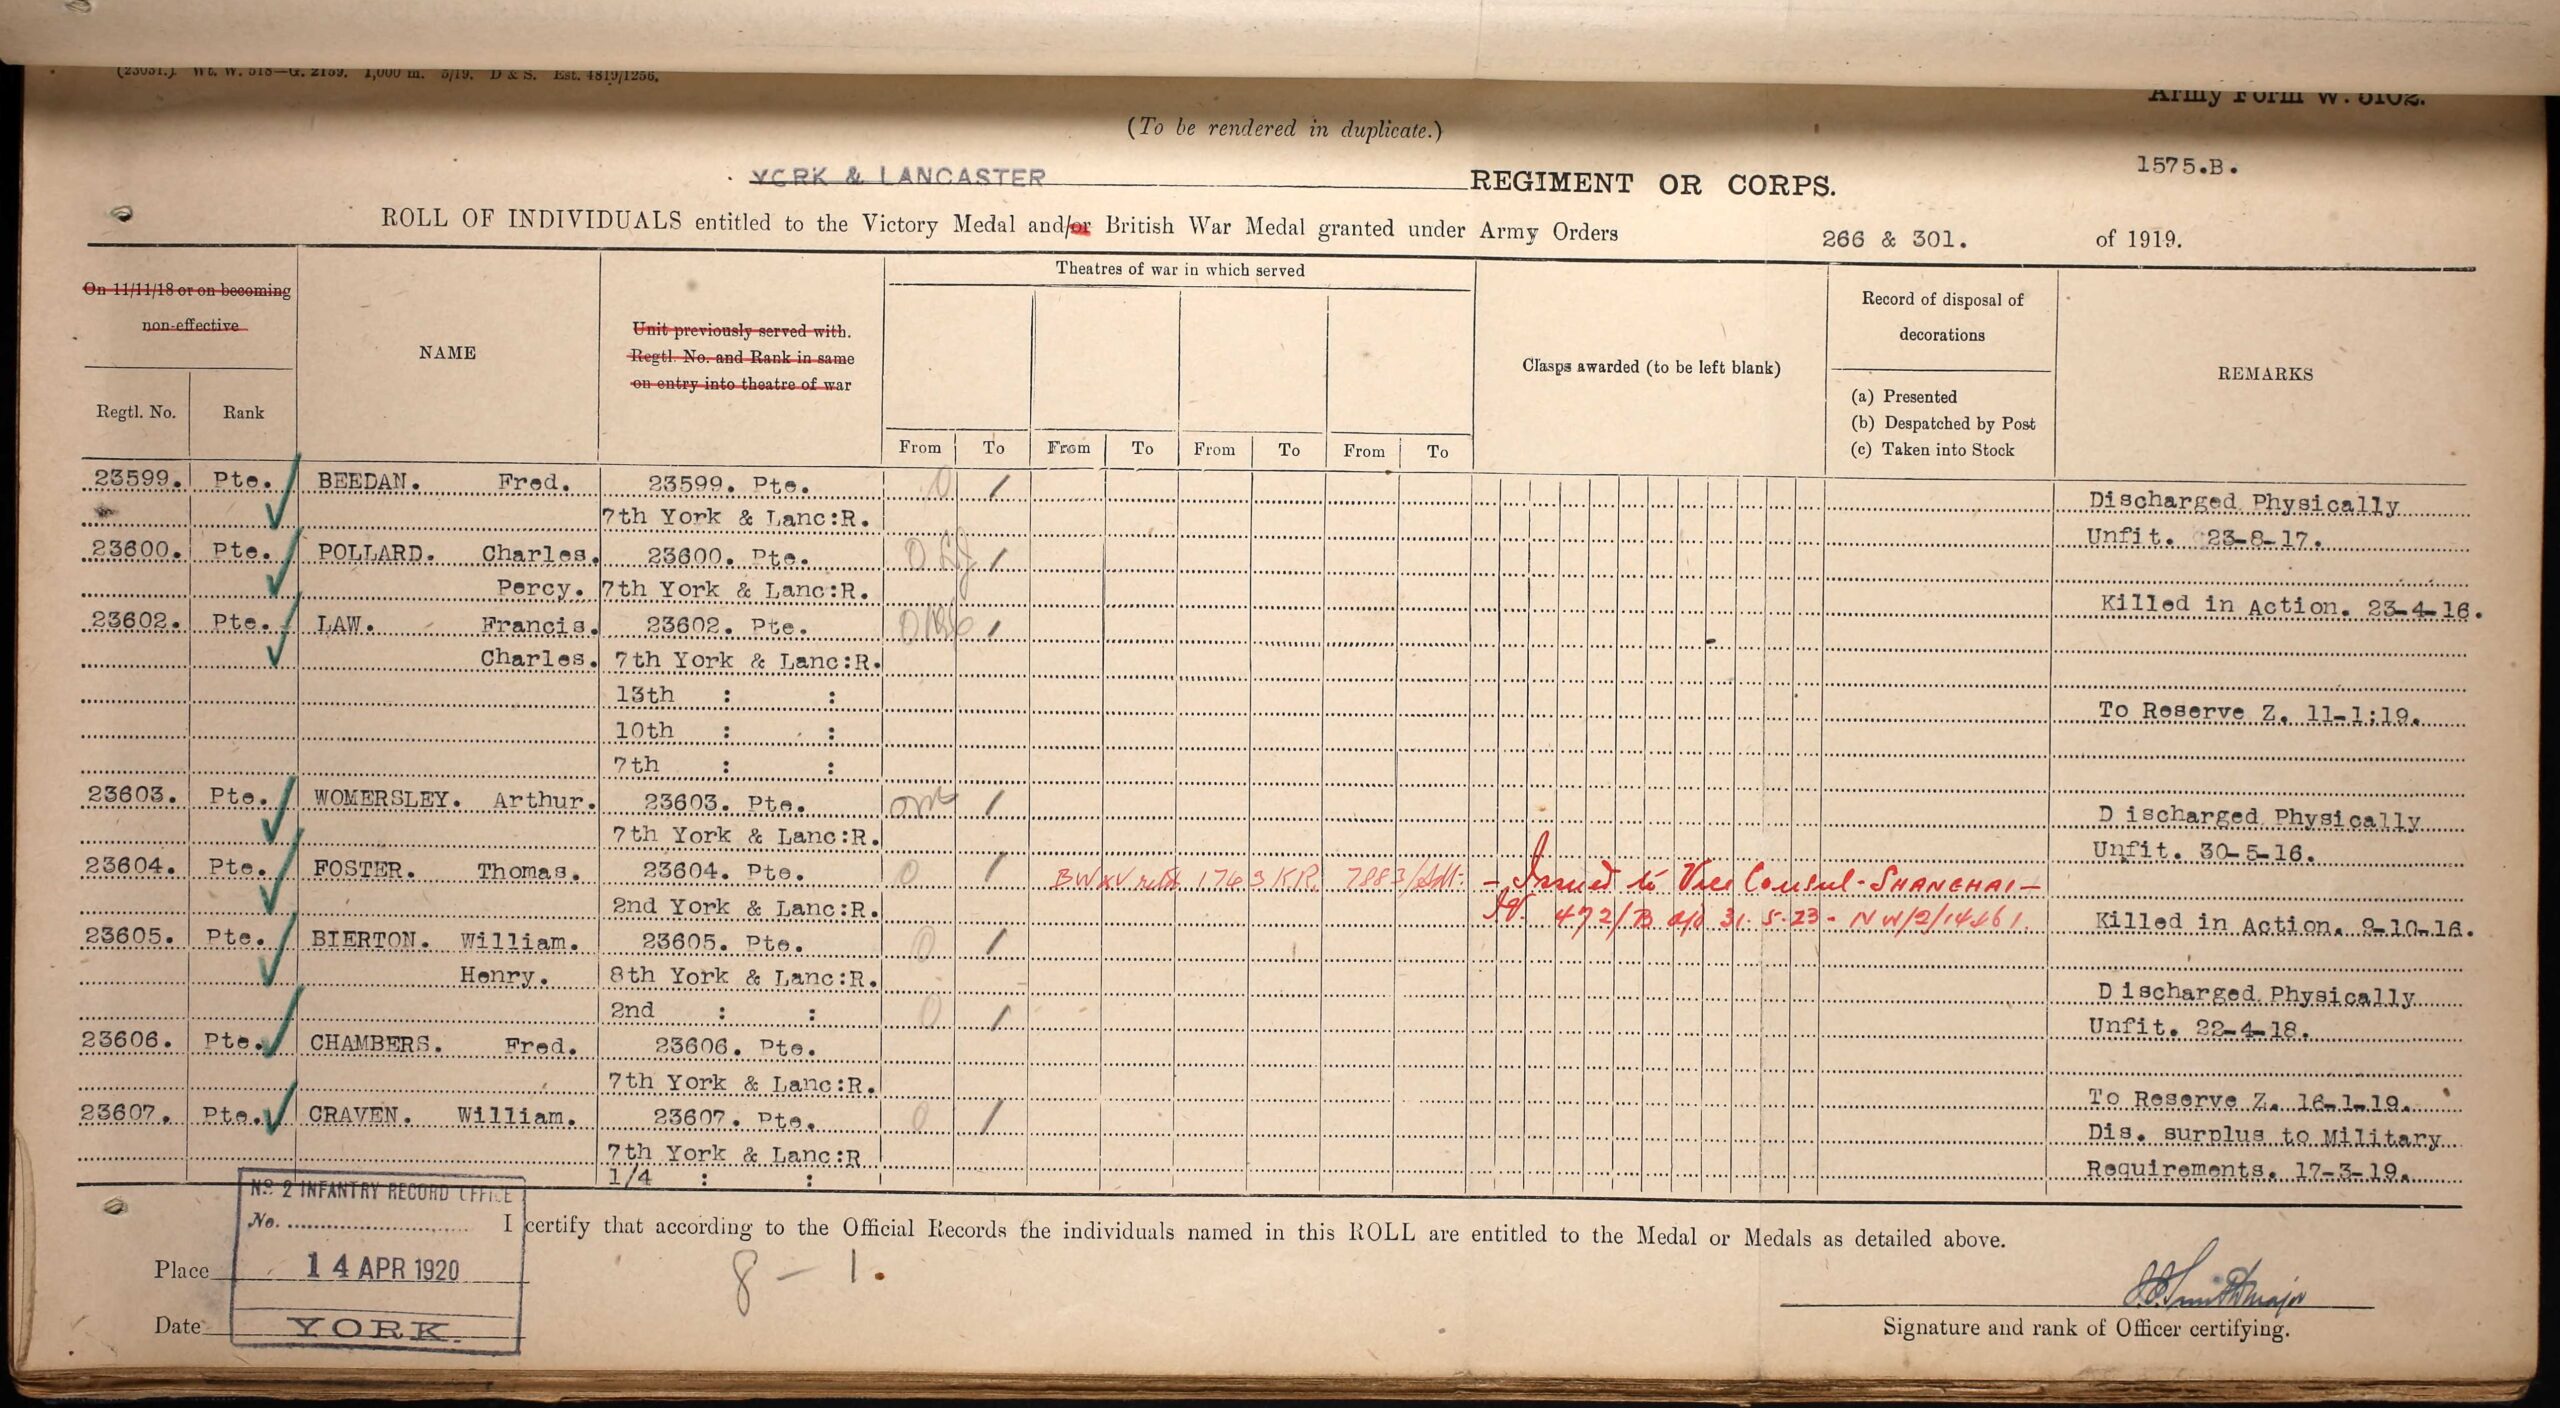 (23031.) Wt. W. 518—G. 2159. 1,000 m. 5/19. D & S. Est. 4819/1256.
Army Form W. 5102.
(To be rendered in duplicate.)
1575.B.
YORK & LANCASTER REGIMENT OR CORPS.
ROLL OF INDIVIDUALS entitled to the Victory Medal and/or British War Medal granted under Army Orders 266 & 301. of 1919.
On 11/11/18 or on becoming
non-effective
Regtl. No. Rank
NAME
Unit previously served with.
Regtl. No. and Rank in same
on entry into theatre of war
Theatres of war in which served
From To From To From To From To
Clasps awarded (to be left blank)
Record of disposal of
decorations
(a) Presented
(b) Despatched by Post
(c) Taken into Stock
REMARKS
23599. Pte. BEEDAN. Fred. 23599. Pte.
7th York & Lanc:R. Discharged Physically
Unfit. 23-8-17.
23600. Pte. POLLARD. Charles. 23600. Pte.
Percy. 7th York & Lanc:R. Killed in Action. 23-4-16.
23602. Pte. LAW. Francis. 23602. Pte.
Charles. 7th York & Lanc:R.
13th : :
10th : : To Reserve Z. 11-1:19.
7th : :
23603. Pte. WOMERSLEY. Arthur. 23603. Pte.
7th York & Lanc:R. Discharged Physically
Unfit. 30-5-16.
23604. Pte. FOSTER. Thomas. 23604. Pte. 1743 KR. - Issued to Vice Consul - SHANGHAI -
2nd York & Lanc:R. 472/B 31.5.23 - NW/2/14461. Killed in Action. 9-10-16.
23605. Pte. BIERTON. William. 23605. Pte.
Henry. 8th York & Lanc:R.
2nd : : Discharged Physically
Unfit. 22-4-18.
23606. Pte. CHAMBERS. Fred. 23606. Pte.
7th York & Lanc:R. To Reserve Z. 16-1-19.
23607. Pte. CRAVEN. William. 23607. Pte. Dis. surplus to Military
7th York & Lanc:R Requirements. 17-3-19.
1/4 : :
No 2 INFANTRY RECORD OFFICE
No.
I certify that according to the Official Records the individuals named in this ROLL are entitled to the Medal or Medals as detailed above.
Place 14 APR 1920
8 - 1.
Date YORK.
Signature and rank of Officer certifying.